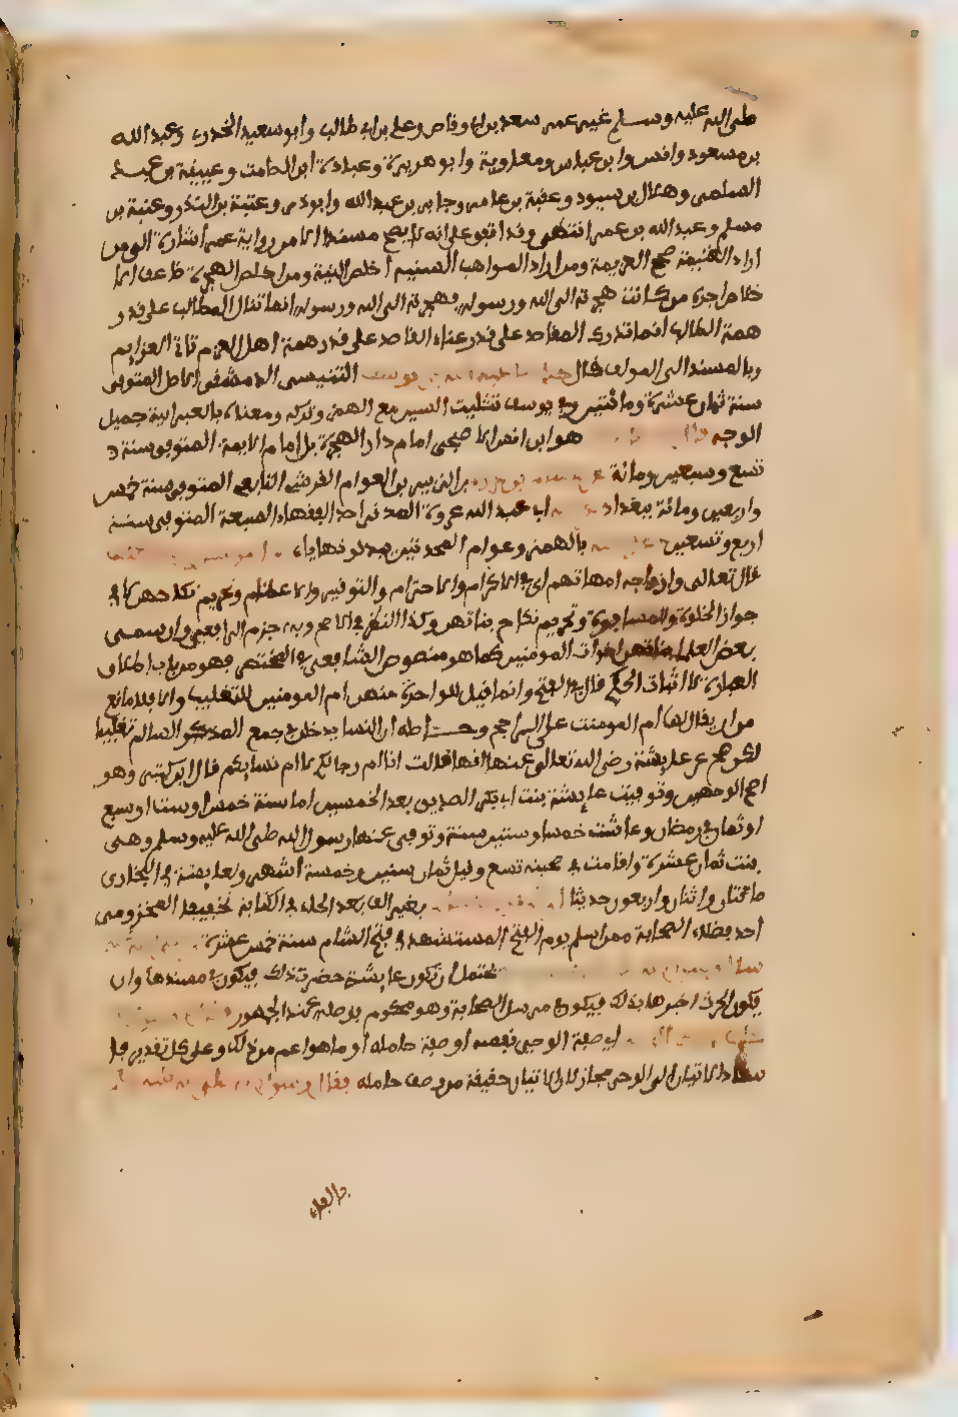 صلى الله عليه وسلم غير عمر سعد بن ابي وقاص وعلي بن ابي طالب وابو سعيد الخدري وعبد الله
بن مسعود وانس وابن عباس ومعاوية وابو هريرة وعبادة ابن الصامت وعتبة بن عبد
السلمي وهلال بن سويد وعقبة بن عامر وجابر بن عبد الله وابو ذر وعتبة بن النذر وعتبة بن
مسلم وعبد الله بن عمر انتهى وقد اتفق على انه لا يصح مسندا الا من رواية عمر اشارة الى من
اراد الغنيمة صحح العزيمة ومن اراد المواهب السنية اخلص النية ومن اخلص الهجرة ضاعف الا
خلاص اجره من كانت هجرته الى الله ورسوله فهجرته الى الله ورسوله انما تنال المطالب على قدر
همة الطالب انما تدرك المقاصد على قدر عناء القاصد على قدر همة اهل العزم تاتي العزايم
وبالمسند الى المولف قال حدثنا عبد الله بن يوسف التنيسي الدمشقي الاصل المتوفى
سنة ثمان عشرة ومائتين وفي يوسف تثليث السين مع الهمز وتركه ومعناه بالعبرانية جميل
الوجه قال هو ابن انس الاصبحي امام دار الهجرة بل امام الايمة المتوفى سنة
تسع وسبعين ومائة عن هشام بن عروة بن الزبير بن العوام القرشي التابعي المتوفى سنة خمس
واربعين ومائة ببغداد ابي عبد الله عروة المدني احد الفقهاء السبعة المتوفى سنة
اربع وتسعين عن بالهمز وعوام المحدثين يبدلونها ياء
قال تعالى وازواجه امهاتهم اي في الاكرام والاحترام والتوقير والاعظام وتحريم نكاحهن لا في
جواز الخلوة والمسافرة وتحريم نكاح بناتهن وكذا النظر في الاصح وبه جزم الرافعي وان سمى
بعض العلماء بناتهن اخوات المومنين كما هو منصوص الشافعي في المختصر فهو من باب اطلاق
العبارة لا اثبات الحكم قال في الفتح وانما قيل للواحدة منهن ام المومنين للتغليب والا فلا مانع
من ان يقال لها ام المومنات على الراجح وحاصله ان النساء يدخلن في جمع المذكر السالم تغليبا
لكن صح عن عايشة رضي الله تعالى عنها انها قالت انا ام رجالكم لا ام نسايكم قال ابن كثير وهو
اصح الوجهين وتوفيت عايشة بنت ابي بكر الصديق بعد الخمسين اما سنة خمس او ست او سبع
او ثمان في رمضان وعاشت خمسا وستين سنة وتوفي عنها رسول الله صلى الله عليه وسلم وهي
بنت ثمان عشرة واقامت في صحبته تسع وقيل ثمان سنين وخمسة اشهر ولعايشة في البخاري
مائتان واثنان واربعون حديثا بغير الف بعد الحاء في الكتابة تخفيفا المخزومي
احد فضلاء الصحابة ممن اسلم يوم الفتح المستشهد في فتح الشام سنة خمس عشرة
يحتمل ان تكون عايشة حضرت ذلك فيكون في مسندها وان
يكون الحرث اخبرها بذلك فيكون في مرسل الصحابة وهو محكوم بوصله عند الجمهور
اي صفة الوحي نفسه او صفة حامله او ما هو اعم من ذلك وعلى كل تقدير فا
سناد الاتيان الى الوحي مجاز لان الاتيان حقيقة من وصف حامله فقال رسول